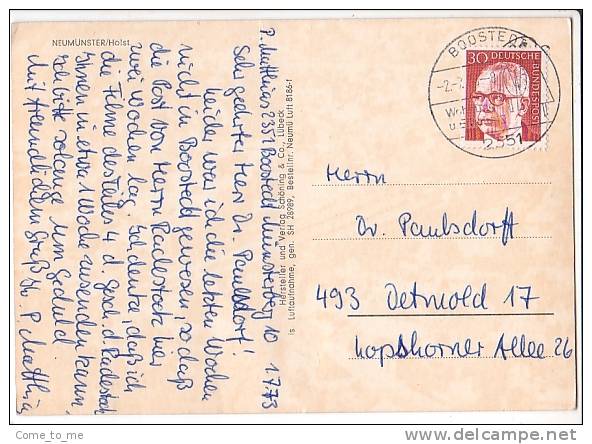 NEUMÜNSTER/Holst
P. Matthies 2351 Boostedt Münsterberg 10 1.7.73
Sehr geehrter Herr Dr. Paulsdorf!
Leider war ich die letzten Wochen
nicht in Boostedt gewesen, so daß
die Post von Herrn Radestock hier
zwei Wochen lag. Ich denke, daß ich
die Filme des Teiles 4 d. Gesch. d. Radestock
Ihnen in etwa 1 Woche zusenden kann.
Ich bitte solange um Geduld.
Mit freundlichem Gruß Ihr P. Matthies
Hersteller und Verlag Schöning & Co., Lübeck
Luftaufnahme, gen. SH 28989, Bestellnr. Neumü Luft 8186-1
BOOSTEDT
2351
30
DEUTSCHE
BUNDESPOST
Herrn
Dr. Paulsdorff
493 Detmold 17
Lopshorner Allee 26
Come_to_me
delcampe.net